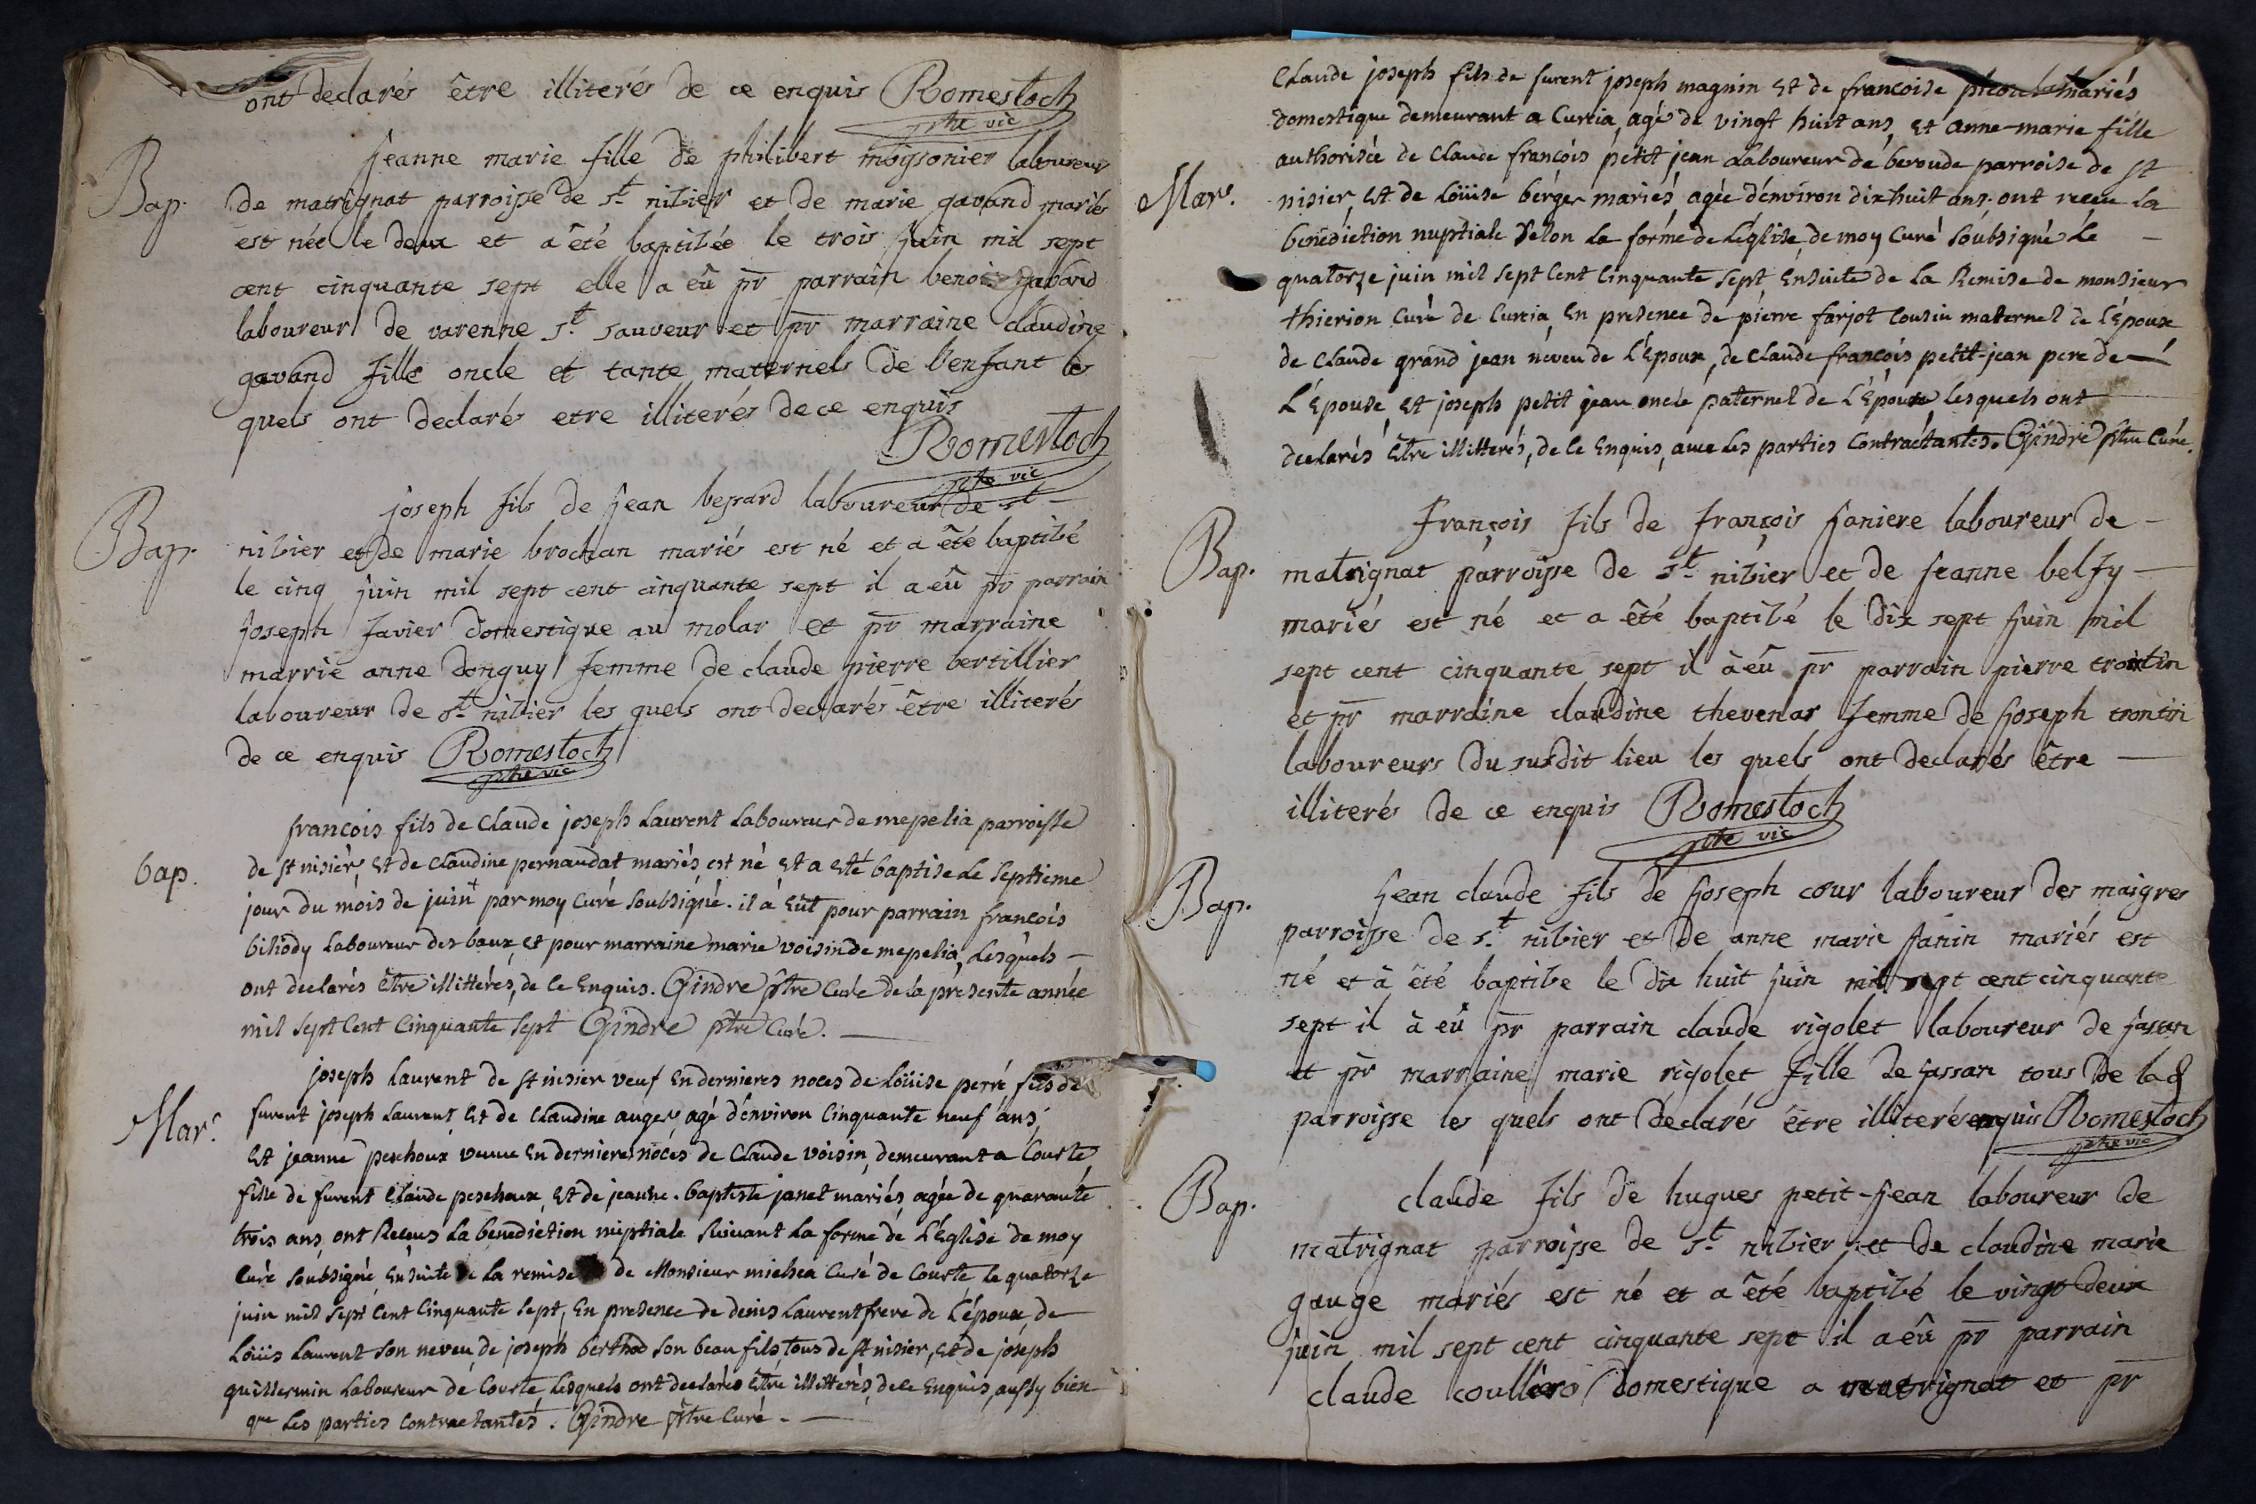 ont declarés être illiterés de ce enquis Romestoch
ptre vic
Bap.
Jeanne marie fille de philibert moysonier laboureur
de matrignat parroisse de st nizier et de marie gavand mariés
est née le deux et a êté baptizée le trois juin mil sept
cent cinquante sept elle a eû pr parrain benoit gavand
laboureur de varenne st sauveur et pr marraine claudine
gavand fille oncle et tante maternels de l'enfant les
quels ont declarés etre illiterés de ce enquis
Romestoch
ptre vic
Bap.
joseph fils de jean bessard laboureur de st
nizier et de marie brochan mariés est né et a êté baptizé
le cinq juin mil sept cent cinquante sept il a eû pr parrain
joseph favier domestique au molar et pr marraine
marrie anne donguy femme de claude pierre bertillier
laboureur de st nizier les quels ont declarés être illiterés
de ce enquis Romestoch
ptre vic
bap.
francois fils de Claude joseph Laurent Laboureur de mepelia parroisse
de st nisier, Et de Claudine pernaudat mariés est né Et a Eté baptise Le septieme
jour du mois de juin par moy Curé soubsigné. il à Eüt pour parrain francois
biliody Laboureur des baux, et pour marraine marie voisin de mepelia, Lesquels
ont declarés Etre illittérés, de ce Enquis. Gindre ptre Curé de la presente année
mil sept Cent Cinquante sept Gindre ptre Curé.
Mar.
joseph Laurent de st nisier veuf En dernieres noces de Loüise perré fils de
furent joseph Laurent, Et de Claudine auger, agé d'environ Cinquante neuf ans,
Et jeanne peschoux veuve En dernieres noces de Claude voisin, demeurant a Courte,
fille de furent Claude peschoux, Et de jeanne-baptiste janet mariés, agée de quarante
trois ans, ont Reçus La benediction nuptiale suivant La forme de L'Eglise de moy
Curé soubsigné, Ensuite de la remise de Monsieur michea Curé de Courte, le quatorze
juin mil sept Cent Cinquante sept, En presence de denis Laurent frere de L'époux, de
Loüis Laurent son neveu, de joseph berthod son beau fils, tous de st nisier, et de joseph
guillermin Laboureur de Courte Lesquels ont declarés Etre illittérés, de ce Enquis, aussy bien
que Les parties Contractantes. Gindre ptre Curé.
Claude joseph fils de furent joseph magnin Et de francoise mariés
domestique demeurant a Curcia, agé de vingt huit ans, Et anne-marie fille
authorisée de Claude françois petit jean Laboureur de beroude parroise de st
Mar.
nisier, Et de Loüise berger mariés, agée d'environ dix huit ans, ont receu La
benediction nuptiale selon La forme de L'église, de moy Curé soubsigné Le
quatorze juin mil sept Cent Cinquante sept Ensuite de La Remise de monsieur
thierion Curé de Curcia, En presence de pierre farjot Cousin maternel de L'Époux
de Claude grand jean neveu de L'Epoux, de Claude françois petit-jean pere de
L'Epouse, Et joseph petit jean oncle paternel de L'Epouse, lesquels ont
declarés Etre illitterés, de ce Enquis, avec Les parties Contractantes. Gindre ptre Curé.
Bap.
François fils de françois janiere laboureur de
matrignat parroisse de st nizier et de jeanne belfy
mariés est né et a êté baptizé le dix sept juin mil
sept cent cinquante sept il à eû pr parrain pierre trontin
et pr marraine claudine thevenar femme de joseph trontin
laboureurs du susdit lieu les quels ont declarés être
illiterés de ce enquis Romestoch
ptre vic
Bap.
jean claude fils de joseph cour laboureur des maigres
parroisse de st nizier et de anne marie janin mariés est
né et à été baptize le dix huit juin mil sept cent cinquante
sept il à eû pr parrain claude rigolet laboureur de jassan
et pr marraine marie rigolet fille de jassan tous de lad
parroisse les quels ont declarés être illiterés enquis Romestoch
ptre vic
Bap.
claude fils de hugues petit-jean laboureur de
matrignat parroisse de st nizier et de claudine marie
gauge mariés est né et a êté baptizé le vingt deux
juin mil sept cent cinquante sept il a eû pr parrain
claude coullero domestique a matrignat et pr